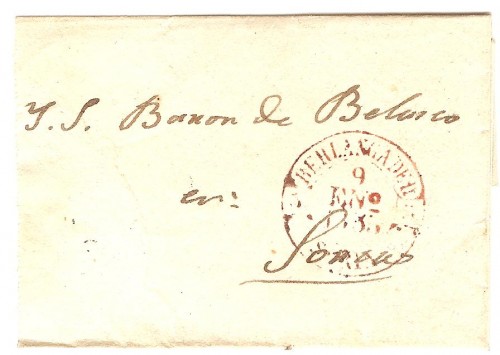 Y. S. Baron de Belasco
en:
Soria
BERLANGA DE D
9
ENº